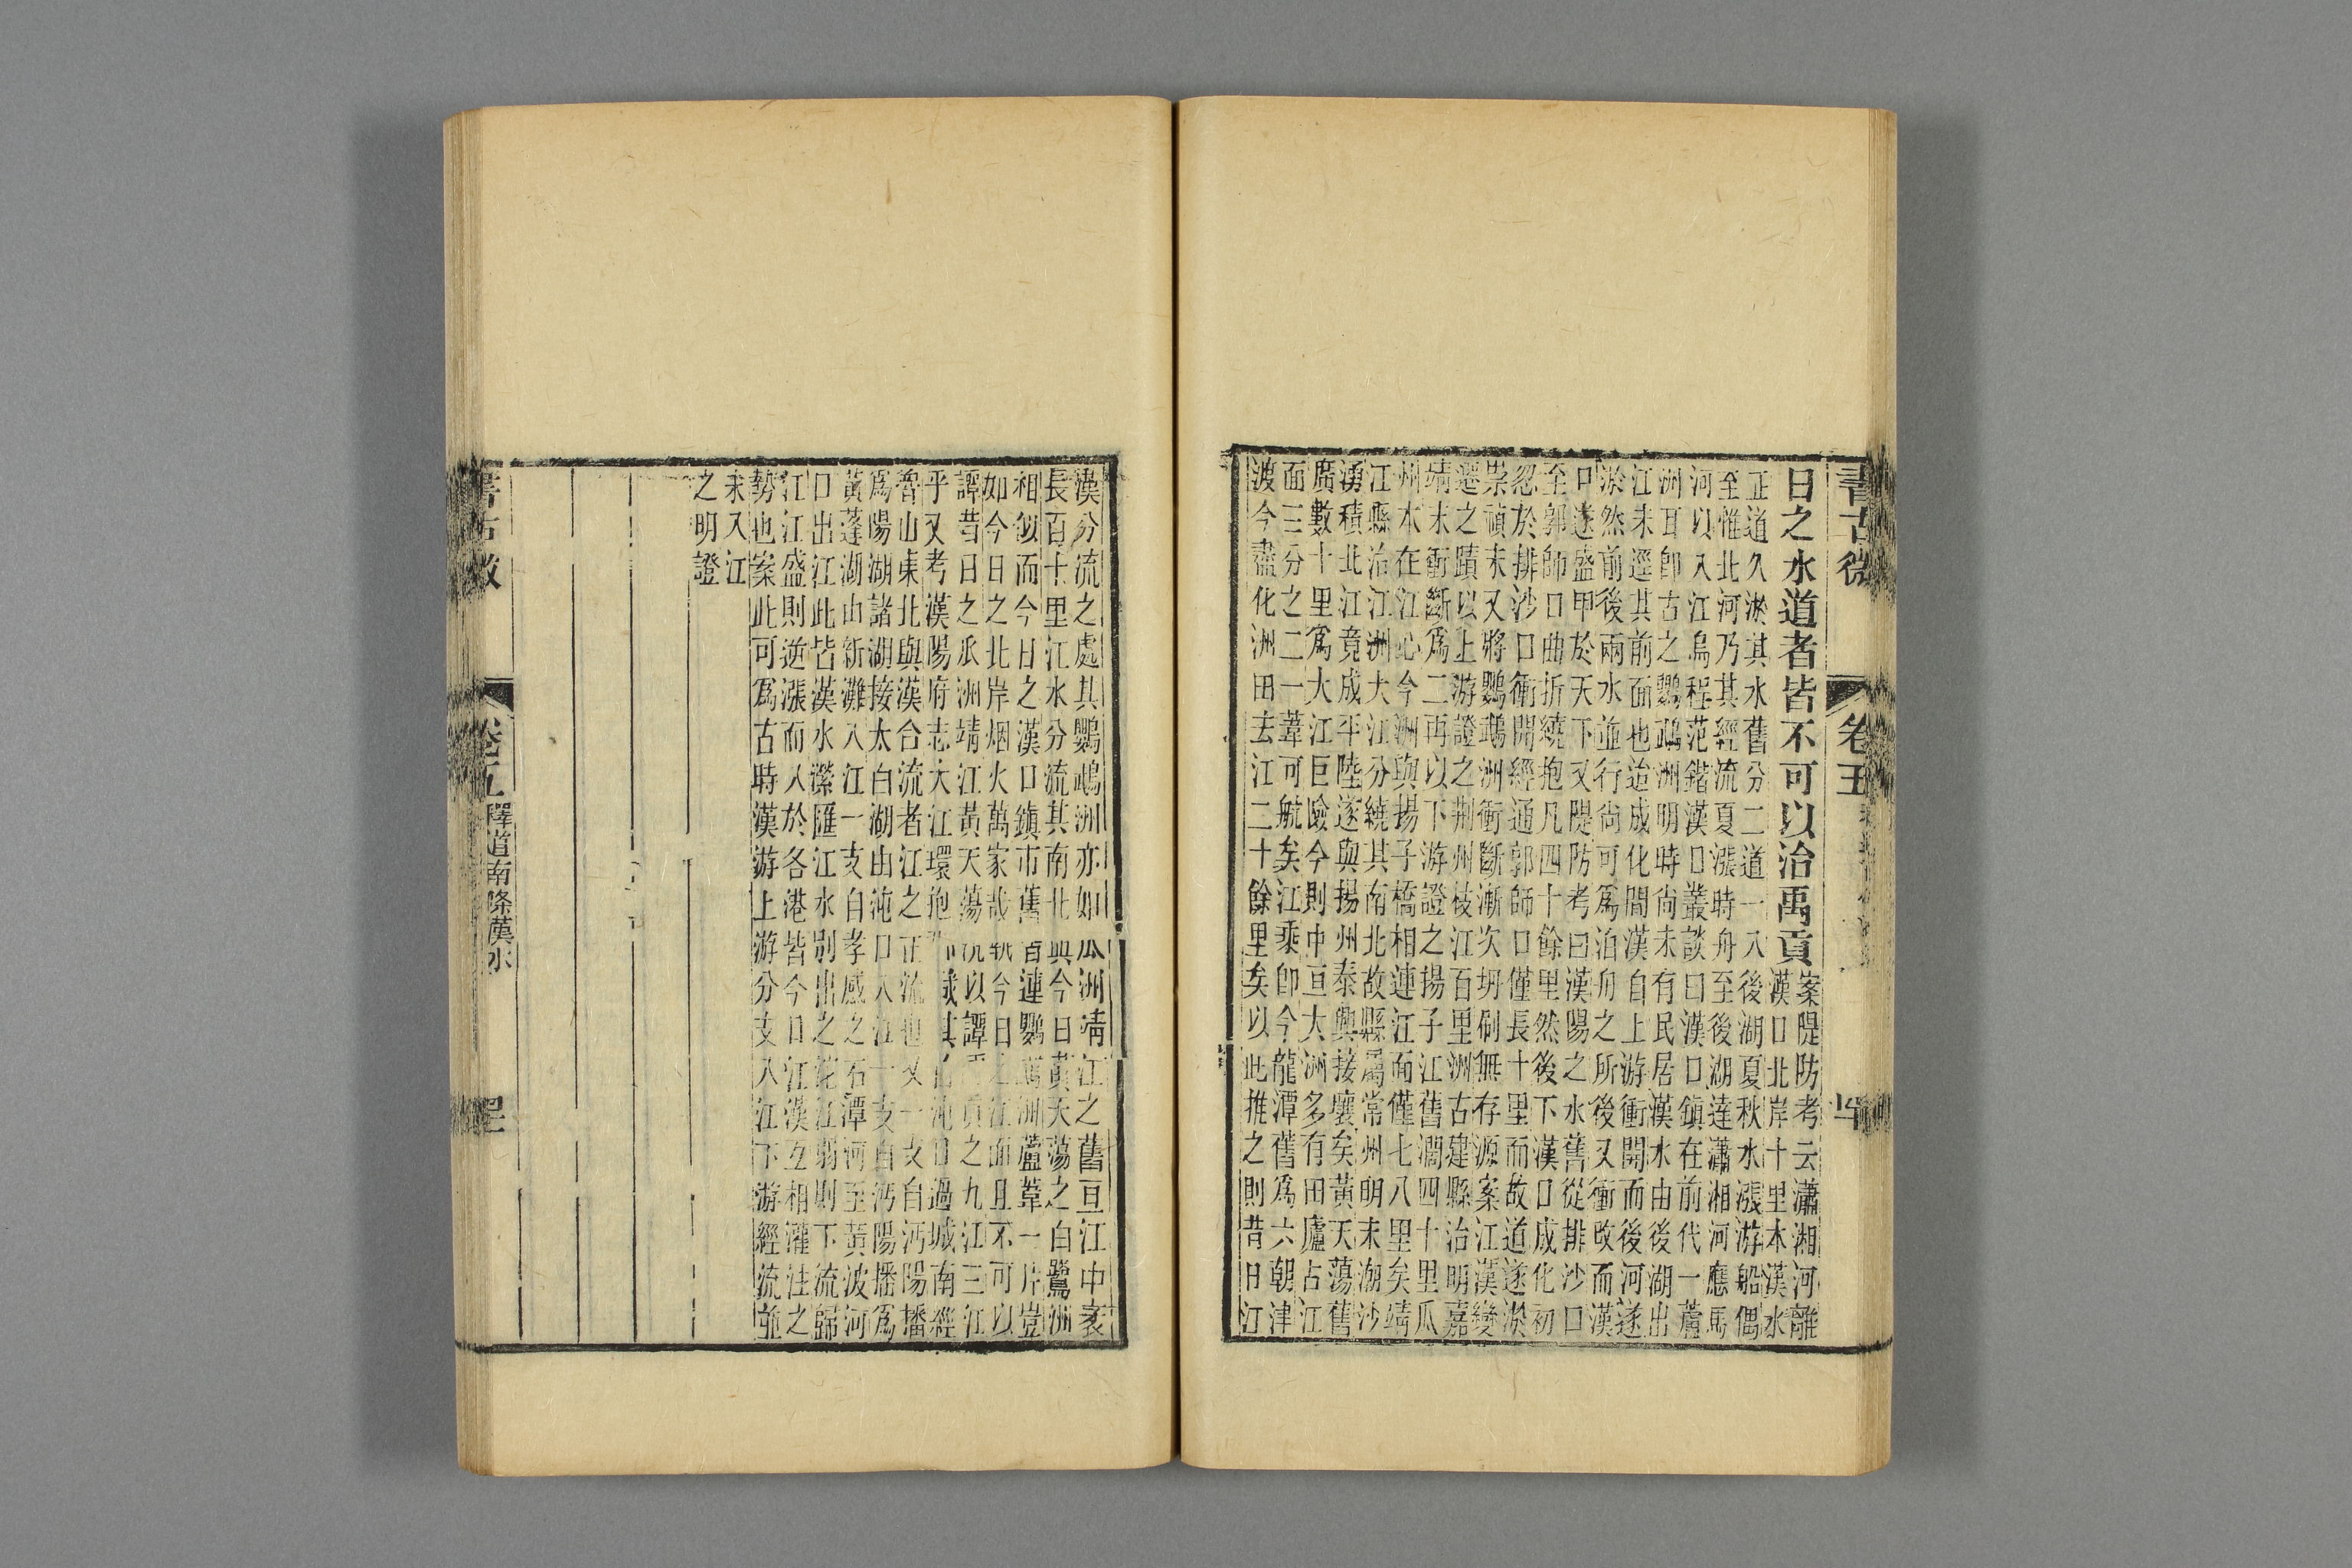 書古微　卷五
日之水道者皆不可以治禹貢
案隄防考云瀟湘河離
漢口北岸十里本漢水
正道久淤其水舊分二道一入後湖夏秋水漲游船偶
至惟北河乃其經流夏漲時舟至後湖達瀟湘河應馬
河以入江烏程范鍇漢口叢談曰漢口鎮在前代一蘆
洲耳卽古之鸚鵡洲明時尙未有民居漢水由後湖出
江未逕其前面也迨成化間漢自上游衝開而後河遂
淤然前後兩水並行尙可爲泊舟之所後又衝改而漢
口遂盛甲於天下又隄防考曰漢陽之水舊從排沙口
至郭師口曲折繞抱凡四十餘里然後下漢口成化初
忽於排沙口衝開經通郭師口僅長十里而故道遂淤
崇禎末又將鸚鵡洲衝斷漸次坍刷無存源案江漢變
遷之蹟以上游證之荆州枝江百里洲古建縣治明嘉
靖末衝斷爲二再以下游證之揚子江舊濶四十里瓜
州本在江心今洲與揚子橋相連江面僅七八里矣靖
江縣治江洲大江分繞其南北故縣屬常州明末潮沙
湧積北江竟成平陸遂與揚州泰興接壤矣黃天蕩舊
廣數十里爲大江巨險今則中亘大洲多有田廬占江
面三分之二一葦可航矣江乘卽今龍潭舊爲六朝津
波今盡化洲田去江二十餘里矣以此推之則昔日江
漢分流之處其鸚鵡洲亦如瓜洲靖江之舊亘江中袤
長百十里江水分流其南北與今日黃天蕩之白鷺洲
相似而今日之漢口鎮市舊皆連鸚鵡洲蘆葦一片豈
如今日之北岸烟火萬家哉執今日之江面且不可以
譚昔日之瓜洲靖江黃天蕩況以譚禹貢之九江三江
乎又考漢陽府志大江環抱城其沌口過城南經
魯山東北與漢合流者江之正流也又一支自沔陽播
爲陽湖諸湖接太白湖由沌口入江一支自沔陽播爲
黃蓬湖由新灘入江一支自孝感之石潭河至黃波河
口出江此皆漢水潆匯江水別出之沱江弱則下流歸
江江盛則逆漲而入於各港皆今日江漢互相灌注之
勢也案此可爲古時漢游上游分支入江下游經流並
未入江
之明證
書古微　卷五　釋道南條漢水